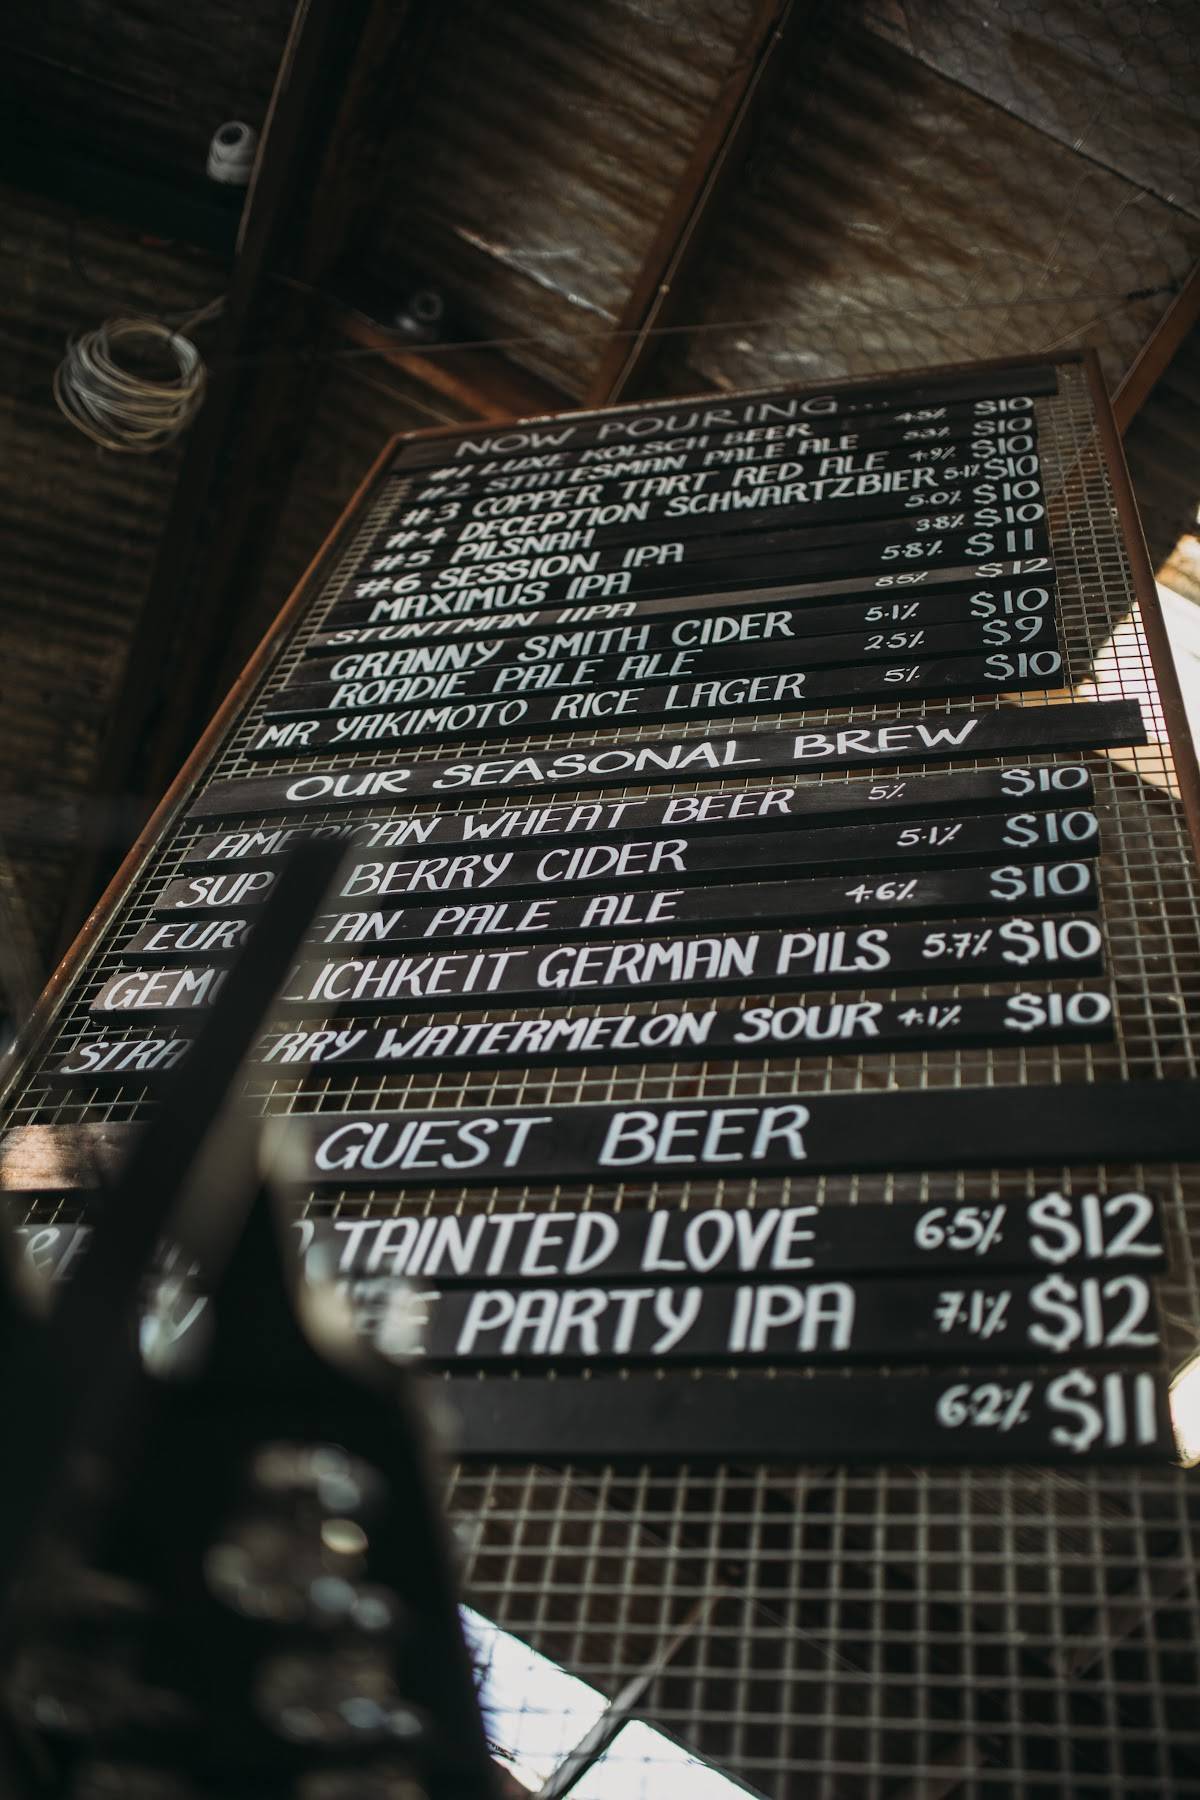 NOW POURING...
#1 LUXE KOLSCH BEER 4.5% $10
#2 STATESMAN PALE ALE 5.3% $10
#3 COPPER TART RED ALE 4.9% $10
#4 DECEPTION SCHWARTZBIER 5.1% $10
#5 PILSNAH 5.0% $10
#6 SESSION IPA 3.8% $10
MAXIMUS IPA 5.8% $11
STUNTMAN IIPA 8.5% $12
GRANNY SMITH CIDER 5.1% $10
ROADIE PALE ALE 2.5% $9
MR YAKIMOTO RICE LAGER 5% $10
OUR SEASONAL BREW
AMERICAN WHEAT BEER 5% $10
BERRY CIDER 5.1% $10
EUROPEAN PALE ALE 4.6% $10
GEMUTLICHKEIT GERMAN PILS 5.7% $10
STRAWBERRY WATERMELON SOUR 4.1% $10
GUEST BEER
TAINTED LOVE 6.5% $12
PARTY IPA 7.1% $12
6.2% $11